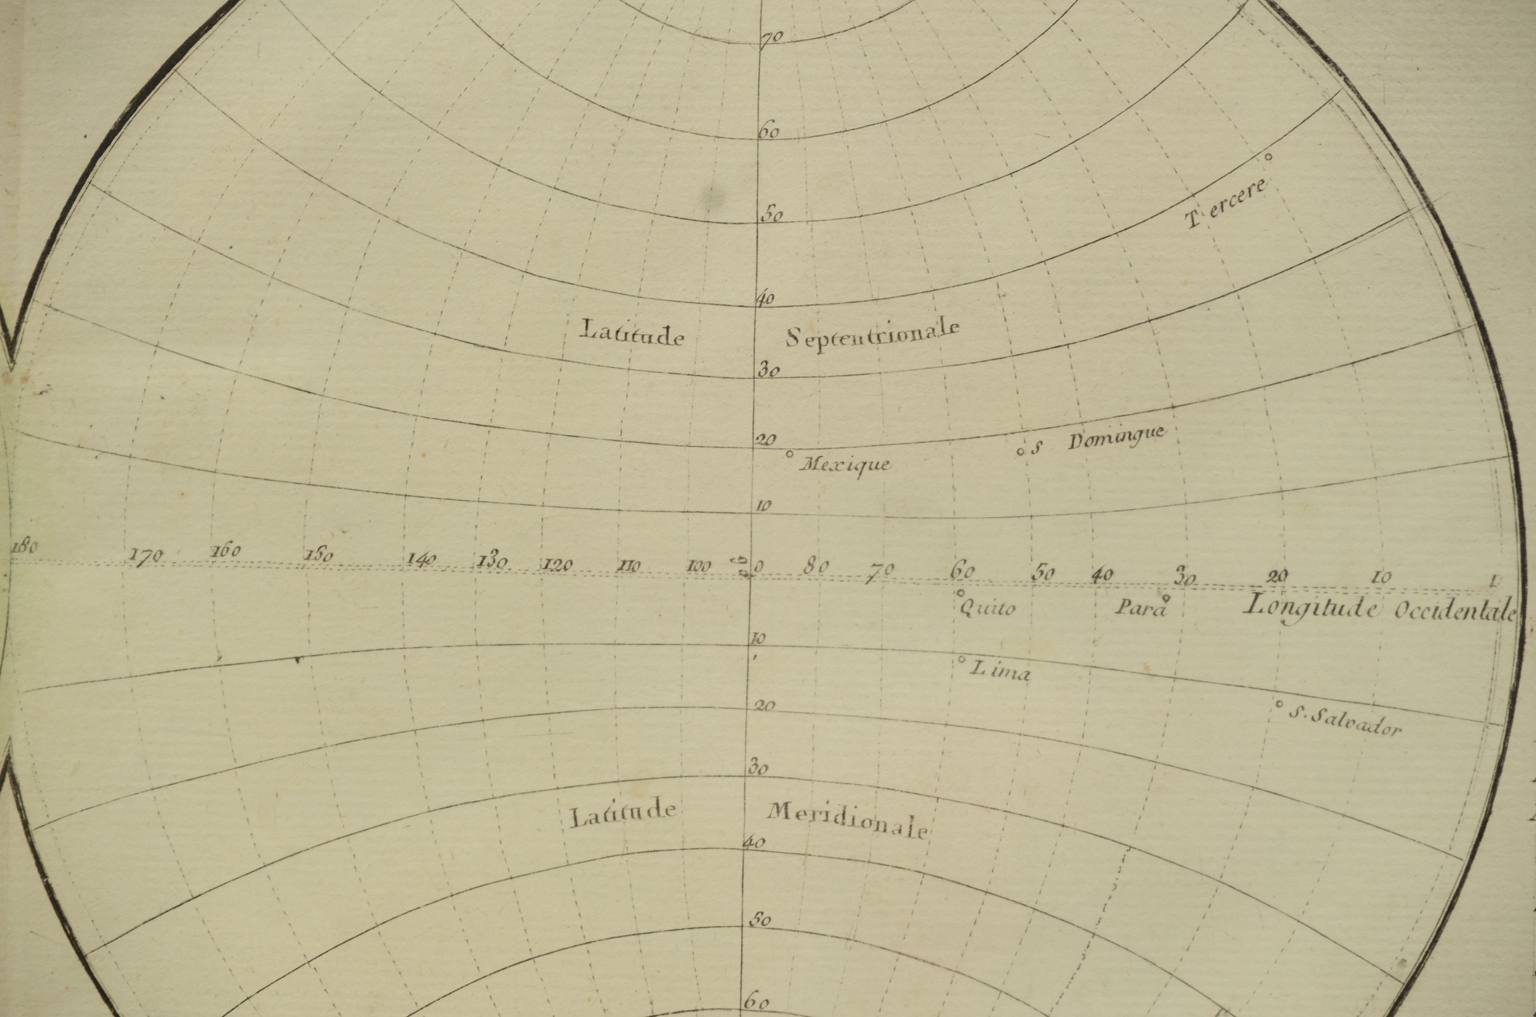 70
60
50
Tercere
40
Latitude Septentrionale
30
20
S Domingue
Mexique
10
180 170 160 150 140 130 120 110 100 90 0 80 70 60 50 40 30 20 10 1
Quito Para Longitude Occidentale
10
Lima
20
S. Salvador
30
Latitude Meridionale
40
50
60